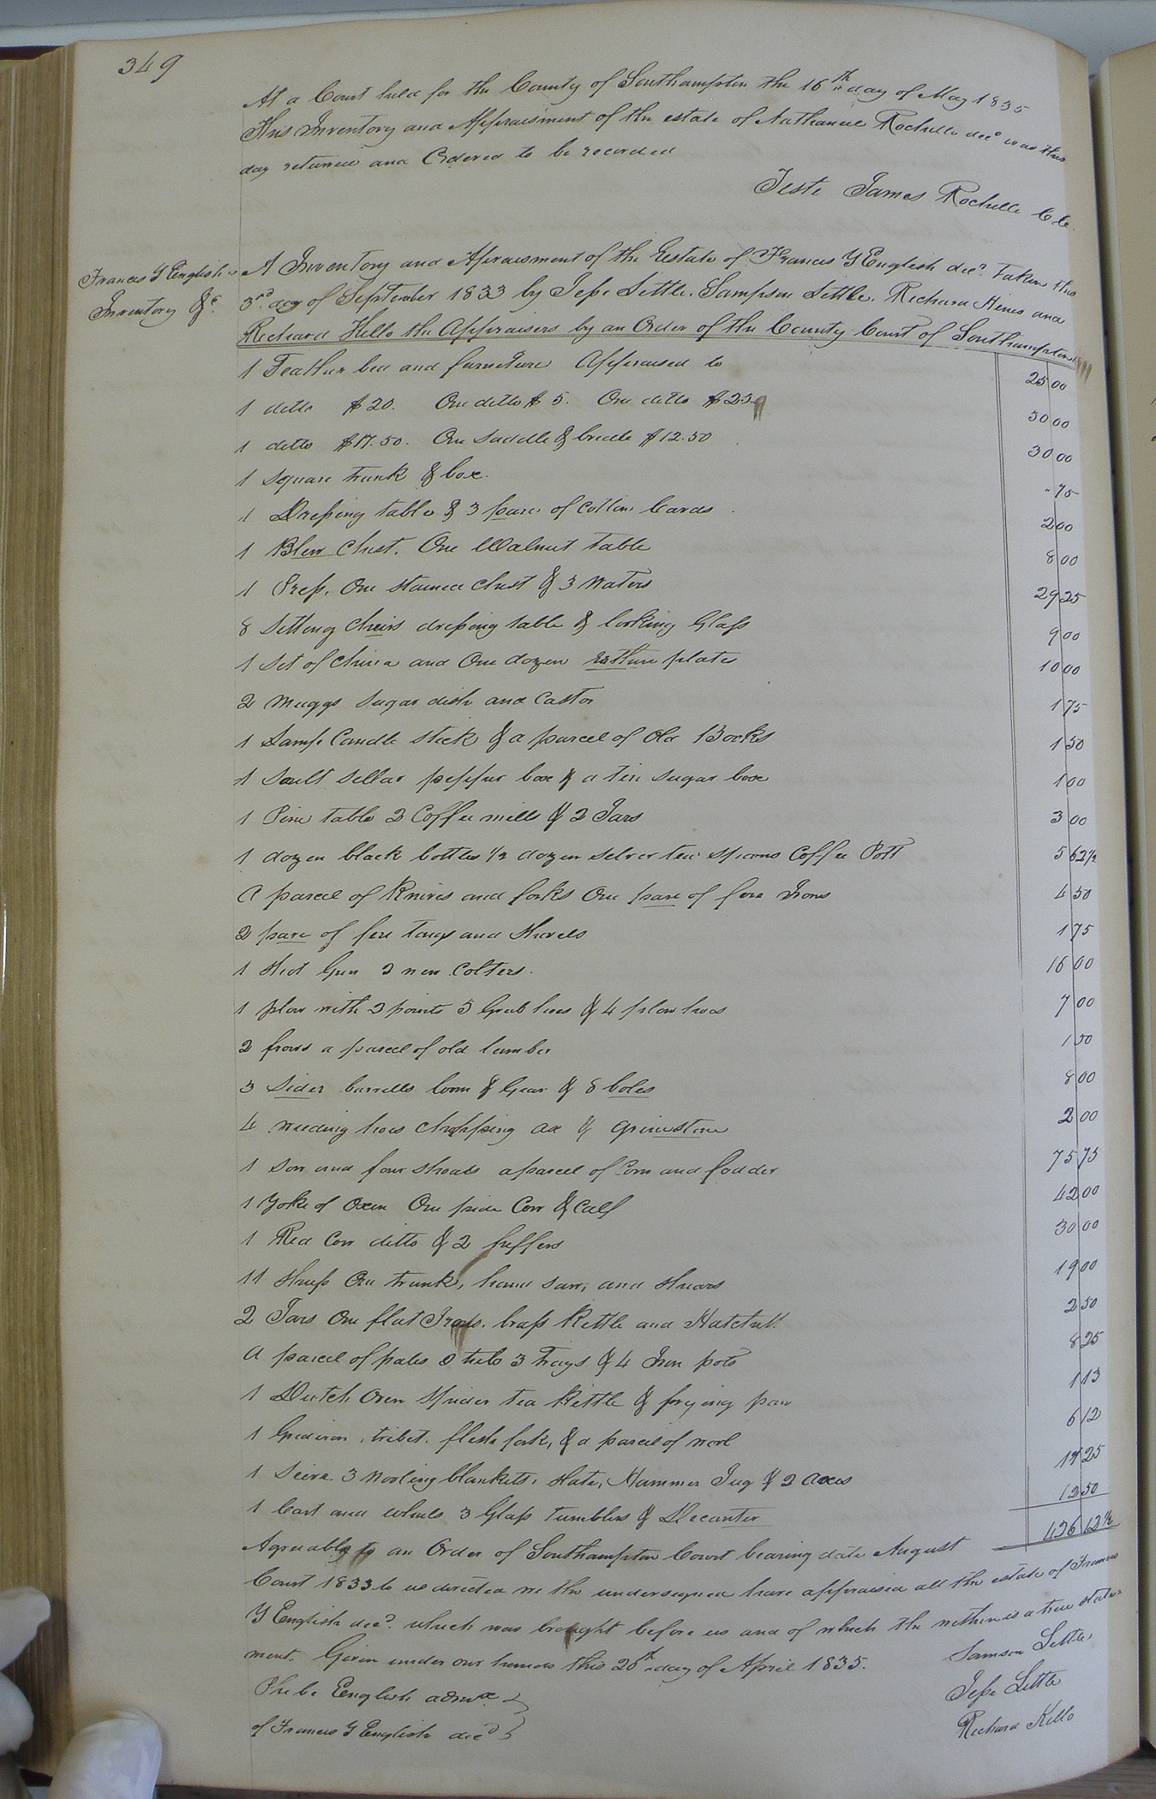 349
At a Court held for the County of Southampton the 16th day of May 1835
This Inventory and Appraisment of the estate of Nathaniel Rochelle decd was this
day returned and Ordered to be recorded
Teste James Rochelle Clk.
Francis Y English's
Inventory &c.
A Inventory and Apraisment of the Estate of Francis Y English decd. Taken this
3rd day of September 1833 by Jesse Little, Sampson Little, Richard Hines and
Richard Kello the Appraisers by an Order of the County Court of Southampton
1 Feather bed and furniture Appraised to 25 00
1 ditto $20. One ditto $5. One ditto $25 50 00
1 ditto $17.50. One Saddle & bridle $12.50 30 00
1 Square trunk & box. 75
1 Dressing table & 3 pare of Cotton Cards 2 00
1 Blew Chest. One Walnut table 8 00
1 Press, One stained Chest & 3 Waters 29 25
8 Setting Cheirs dressing table & looking Glass 9 00
1 Set of China and One dozen earthen plates 10 00
2 Muggs Sugar dish and Castor 1 75
1 Lamp Candle stick & a parcel of Old Books 1 50
1 Sault Sellar pepper box & a tin Sugar box 1 00
1 Pine table 2 Coffee mills & 2 Jars 3 00
1 dozen black bottles 1/2 dozen Silver tea spoons Coffee Pott 5 62½
A parcel of Knives and forks One pare of fire Irons 4 50
2 pare of fire tongs and Shovels 1 75
1 Shot Gun 2 new Colters. 16 00
1 plow with 3 points 5 Grub hoes & 4 plow hoes 7 00
2 frows a parcel of old lumber 1 50
3 Sider barrells loom & Gear & 8 boles 8 00
4 weeding hoes chopping ax & grinestone 2 00
1 Sow and four Shoats a parcel of Corn and fodder 75 75
1 Yoke of Oxen One pide Cow & Calf 42 00
1 Red Cow ditto & 2 heffers 30 00
11 Sheep One trunk, hand saw, and Shears 19 00
2 Jars One flat Irons. brass Kettle and Hatchell 2 50
A parcel of pales tubs 3 trays & 4 Iron pots 8 25
1 Dutch Oven Spider tea Kettle & frying pan 1 13
1 Gridiron, tribet. flesh fork, & a parcel of wool 6 12
1 Sieve 3 Nooling blankets, slate, Hammer Jug & 2 axes 17 25
1 Cart and wheels 3 Glass tumblers & Decanter 12 50
436 12½
Agreeably to an Order of Southampton Court bearing date August
Court 1833 to us directed we the undersigned have appraised all the estate of Francis
Y English decd. which was brought before us and of which the within is a true state=
ment. Given under our hands this 28th day of April 1835.
Samson Little
Jesse Little
Richard Kello
Phebe English admx
of Francis Y English decd